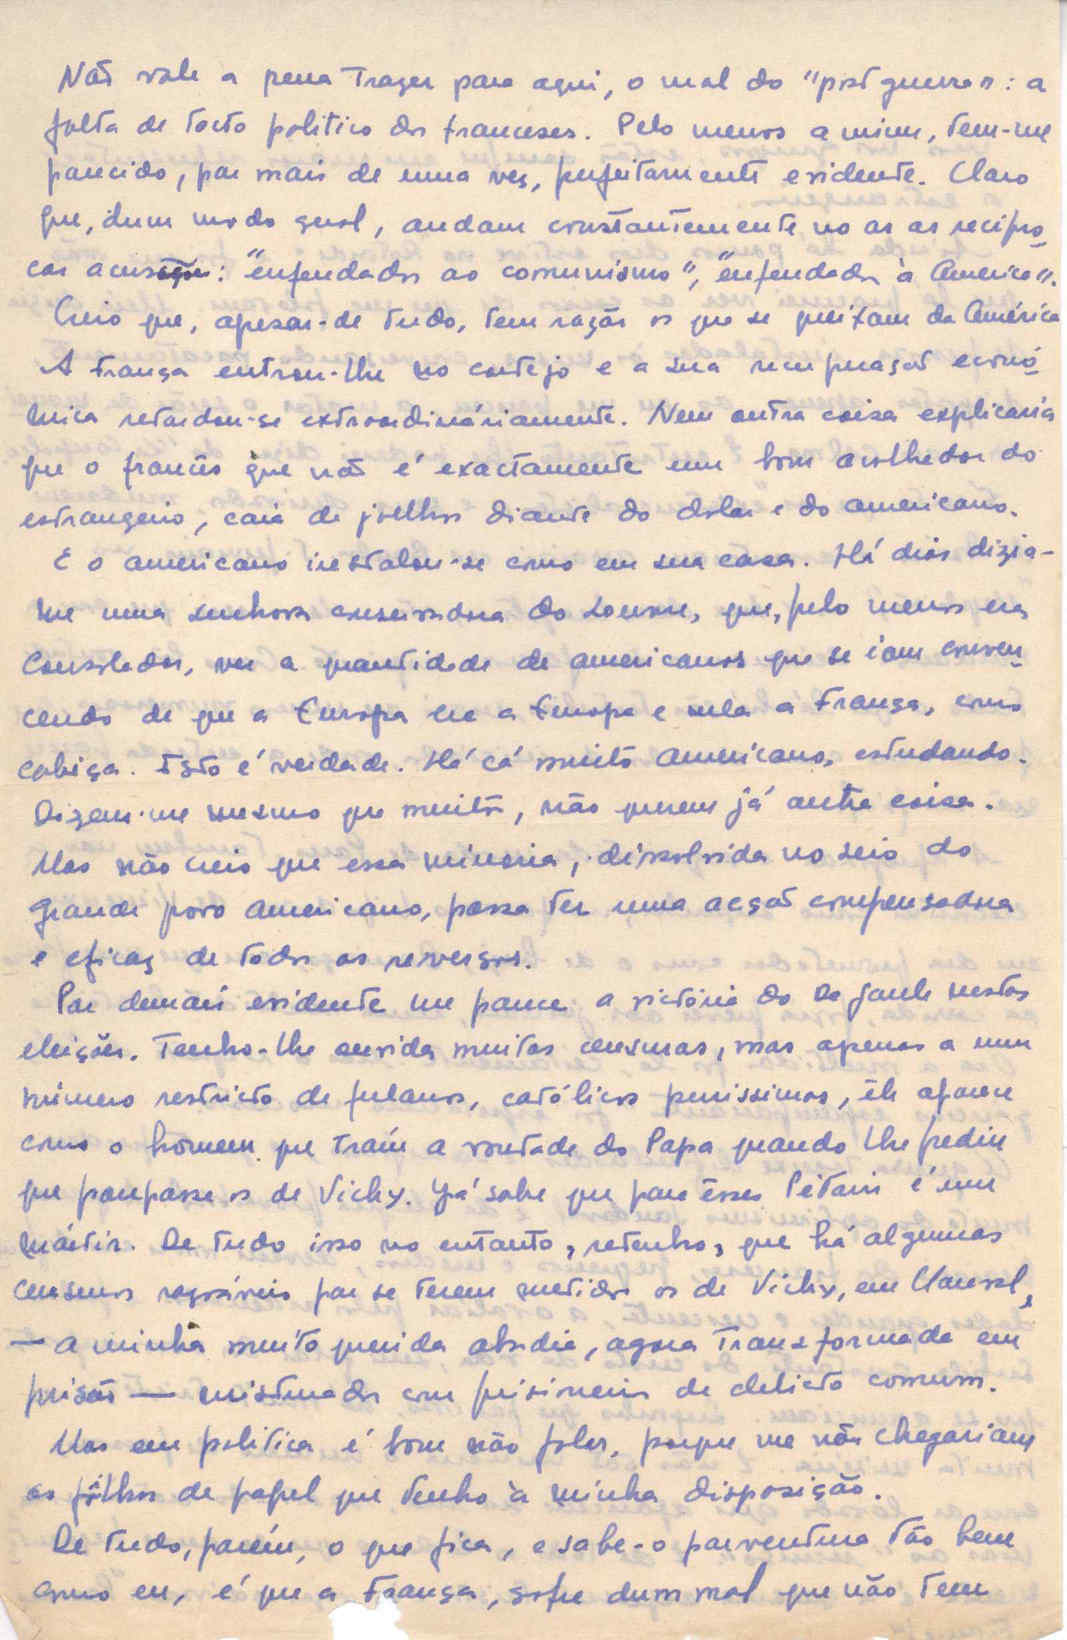 Não vale a pena trazer para aqui, o mal do "post guerra": a
falta de tacto politico dos franceses. Pelo menos a mim, tem-me
parecido, par mais de uma vez, perfeitamente evidente. Claro
que, dum modo geral, andam constantemente no ar as recipro-
cas acusações: "enfeudados ao comunismo", "enfeudados à America".
Creio que, apesar-de tudo, tem razão os que se queixam da América
A França entrou-lhe no cortejo e a sua recuperação econó-
mica retardou-se extraordináriamente. Nem outra coisa explicaria
que o francês que não é exactamente um bom acolhedor do
estrangeiro, caia de joelhos diante do dolar e do americano.
E o americano instalou-se como em sua casa. Há dias dizia-
me uma senhora conservadora do Louvre, que, pelo menos era
consolador, ver a quantidade de americanos que se iam conven-
cendo de que a Europa era a Europa e nela a França, como
cabeça. Isto é verdade. Há cá muito americano, estudando.
Dizem-me mesmo que muitos, não querem já outra coisa.
Mas não creio que essa minoria, dissolvida no seio do
grande povo americano, possa ter uma acção compensadora
e eficaz de todos os reversos.
Por demais evidente me parece a victória do De Gaule nestas
eleições. Tenho-lhe ouvido muitas censuras, mas apenas a um
número restricto de fulanos, católicos purissimos, êle aparece
como o homem que traíu a vontade do Papa quando lhe pediu
que poupasse os de Vichy. Já sabe que para êsses Pétain é um
mártir. De tudo isso no entanto, retenho, que há algumas
censuras razoáveis por se terem metido os de Vichy, em Clairval,
— a minha muito querida abadia, agora transformada em
prisão — misturados com prisioneiros de delicto comum.
Mas em politica é bom não falar, porque me não chegariam
as fôlhas de papel que tenho à minha disposição.
De tudo, porém, o que fica, e sabe-o porventura tão bem
como eu, é que a França, sofre dum mal que não tem